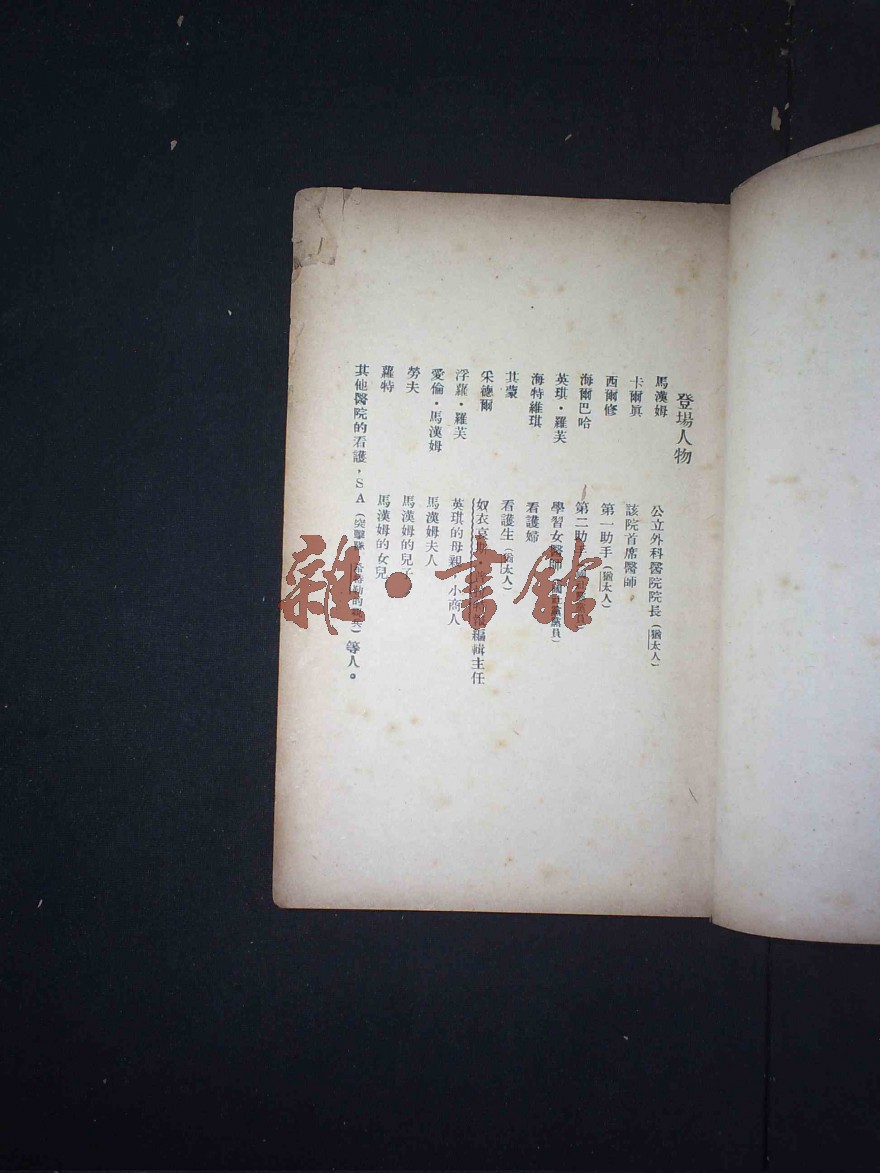 登場人物
馬漢姆 公立外科醫院院長(猶太人)
卡爾眞 該院首席醫師
西爾修 第一助手(猶太人)
海爾巴哈 第二助手
英琪・羅芙 學習女醫師
海特維琪 看護婦
其蒙 看護生(猶太人)
釆德爾 奴衣哀 編輯主任
浮蘿・羅芙 英琪的母親 小商人
愛倫・馬漢姆 馬漢姆夫人
勞夫 馬漢姆的兒子
蘿特 馬漢姆的女兒
其他醫院的看護,SA(突擊隊)等人。
雜・書館